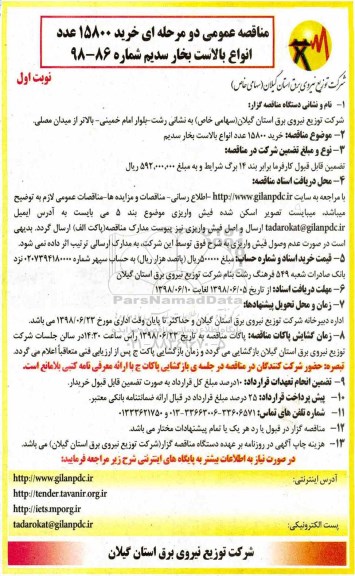 مناقصه عمومی دو مرحله ای خرید ۱۵۸۰۰ عدد
انواع بالاست بخار سدیم شماره ۸۶-۹۸
شرکت توزیع نیروی برق استان گیلان(سهامی خاص)
نوبت اول
۱- نام و نشانی دستگاه مناقصه گزار:
شرکت توزیع نیروی برق استان گیلان(سهامی خاص) به نشانی رشت-بلوار امام خمینی- بالاتر از میدان مصلی.
۲- موضوع مناقصه: خرید ۱۵۸۰۰ عدد انواع بالاست بخار سدیم
۳- نوع و مبلغ تضمین شرکت در مناقصه:
تضمین قابل قبول کارفرما برابر بند ۱۴ برگ شرایط و به مبلغ ۵۹۲,۰۰۰,۰۰۰ ریال
۴- محل دریافت اسناد مناقصه:
با مراجعه به سایت http://www.gilanpdc.ir -اطلاع رسانی- مناقصات و مزایده ها-مناقصات عمومی لازم به توضیح
میباشد، میبایست تصویر اسکن شده فیش واریزی موضوع بند ۵ می بایست به آدرس ایمیل
tadarokat@gilanpdc.ir ارسال و اصل فیش واریزی نیز پیوست مدارک مناقصه(پاکت الف) ارسال گردد. بدیهی
است در صورت عدم وصول فیش واریزی به شرح فوق توسط این شرکت، به مدارک ارسالی ترتیب اثر داده نمی شود.
۵- قیمت خرید اسناد و شماره حساب: مبلغ ۵۰۰۰۰۰ریال (پانصد هزار ریال) به حساب سپهر شماره ۰۲۰۷۳۹۴۱۸۰۰۰۰ نزد
بانک صادرات شعبه ۵۴۹ فرهنگ رشت بنام شرکت توزیع نیروی برق استان گیلان
۶- مهلت دریافت اسناد: از تاریخ ۱۳۹۸/۰۶/۰۵ لغایت ۱۳۹۸/۰۶/۱۰
۷- زمان و محل تحویل پیشنهادها:
اداره دبیرخانه شرکت توزیع نیروی برق استان گیلان و حداکثر تا پایان وقت اداری مورخ ۱۳۹۸/۰۶/۲۳ می باشد.
۸- زمان گشایش پاکات مناقصه: پاکات مناقصه به تاریخ ۱۳۹۸/۰۶/۲۴ راس ساعت ۱۴:۳۰در سالن جلسات شرکت
توزیع نیروی برق استان گیلان بازگشایی می گردد و زمان بازگشایی پاکت ج پس از ارزیابی فنی متعاقباً اعلام می گردد.
تبصره: حضور شرکت کنندگان در مناقصه در جلسه ی بازگشایی پاکات ج با ارائه معرفی نامه کتبی بلامانع است.
۹- تضمین انجام تعهدات قرارداد: ۱۰درصد مبلغ کل قرارداد به صورت تضمین قابل قبول خریدار.
۱۰- پیش پرداخت قرارداد: ۲۵ درصد مبلغ قرارداد در قبال ارائه ضمانتنامه بانکی معتبر.
۱۱- شماره تلفن های تماس: ۳۳۶۰۶۵۷۱-۰۱۳-۳۳۶۶۳۰۰۶ و ۰۱۳۳۳۶۲۱۷۵۰
۱۲- مناقصه گزار در قبول یا رد هر یک یا تمام پیشنهادات مختار می باشد.
۱۳- هزینه چاپ آگهی در روزنامه بر عهده دستگاه مناقصه گزار(شرکت توزیع نیروی برق استان گیلان) می باشد.
در صورت نیاز به اطلاعات بیشتر به پایگاه های اینترنتی شرح زیر مراجعه فرمایید:
آدرس اینترنتی:
http://www.gilanpdc.ir
http://tender.tavanir.org.ir
http://iets.mporg.ir
پست الکترونیکی:
tadarokat@gilanpdc.ir
شرکت توزیع نیروی برق استان گیلان